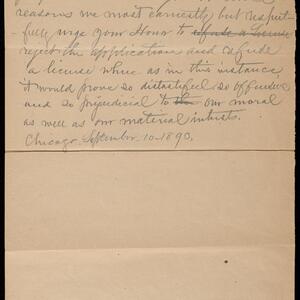 reasons we most earnestly but respect-
fully urge your Honor to refuse a license
reject the application and refuse
a license when as in this instance,
it would prove so distasteful so offensive
and so prejudicial to the our moral
as well as our material interests.
Chicago, September 10-1890.